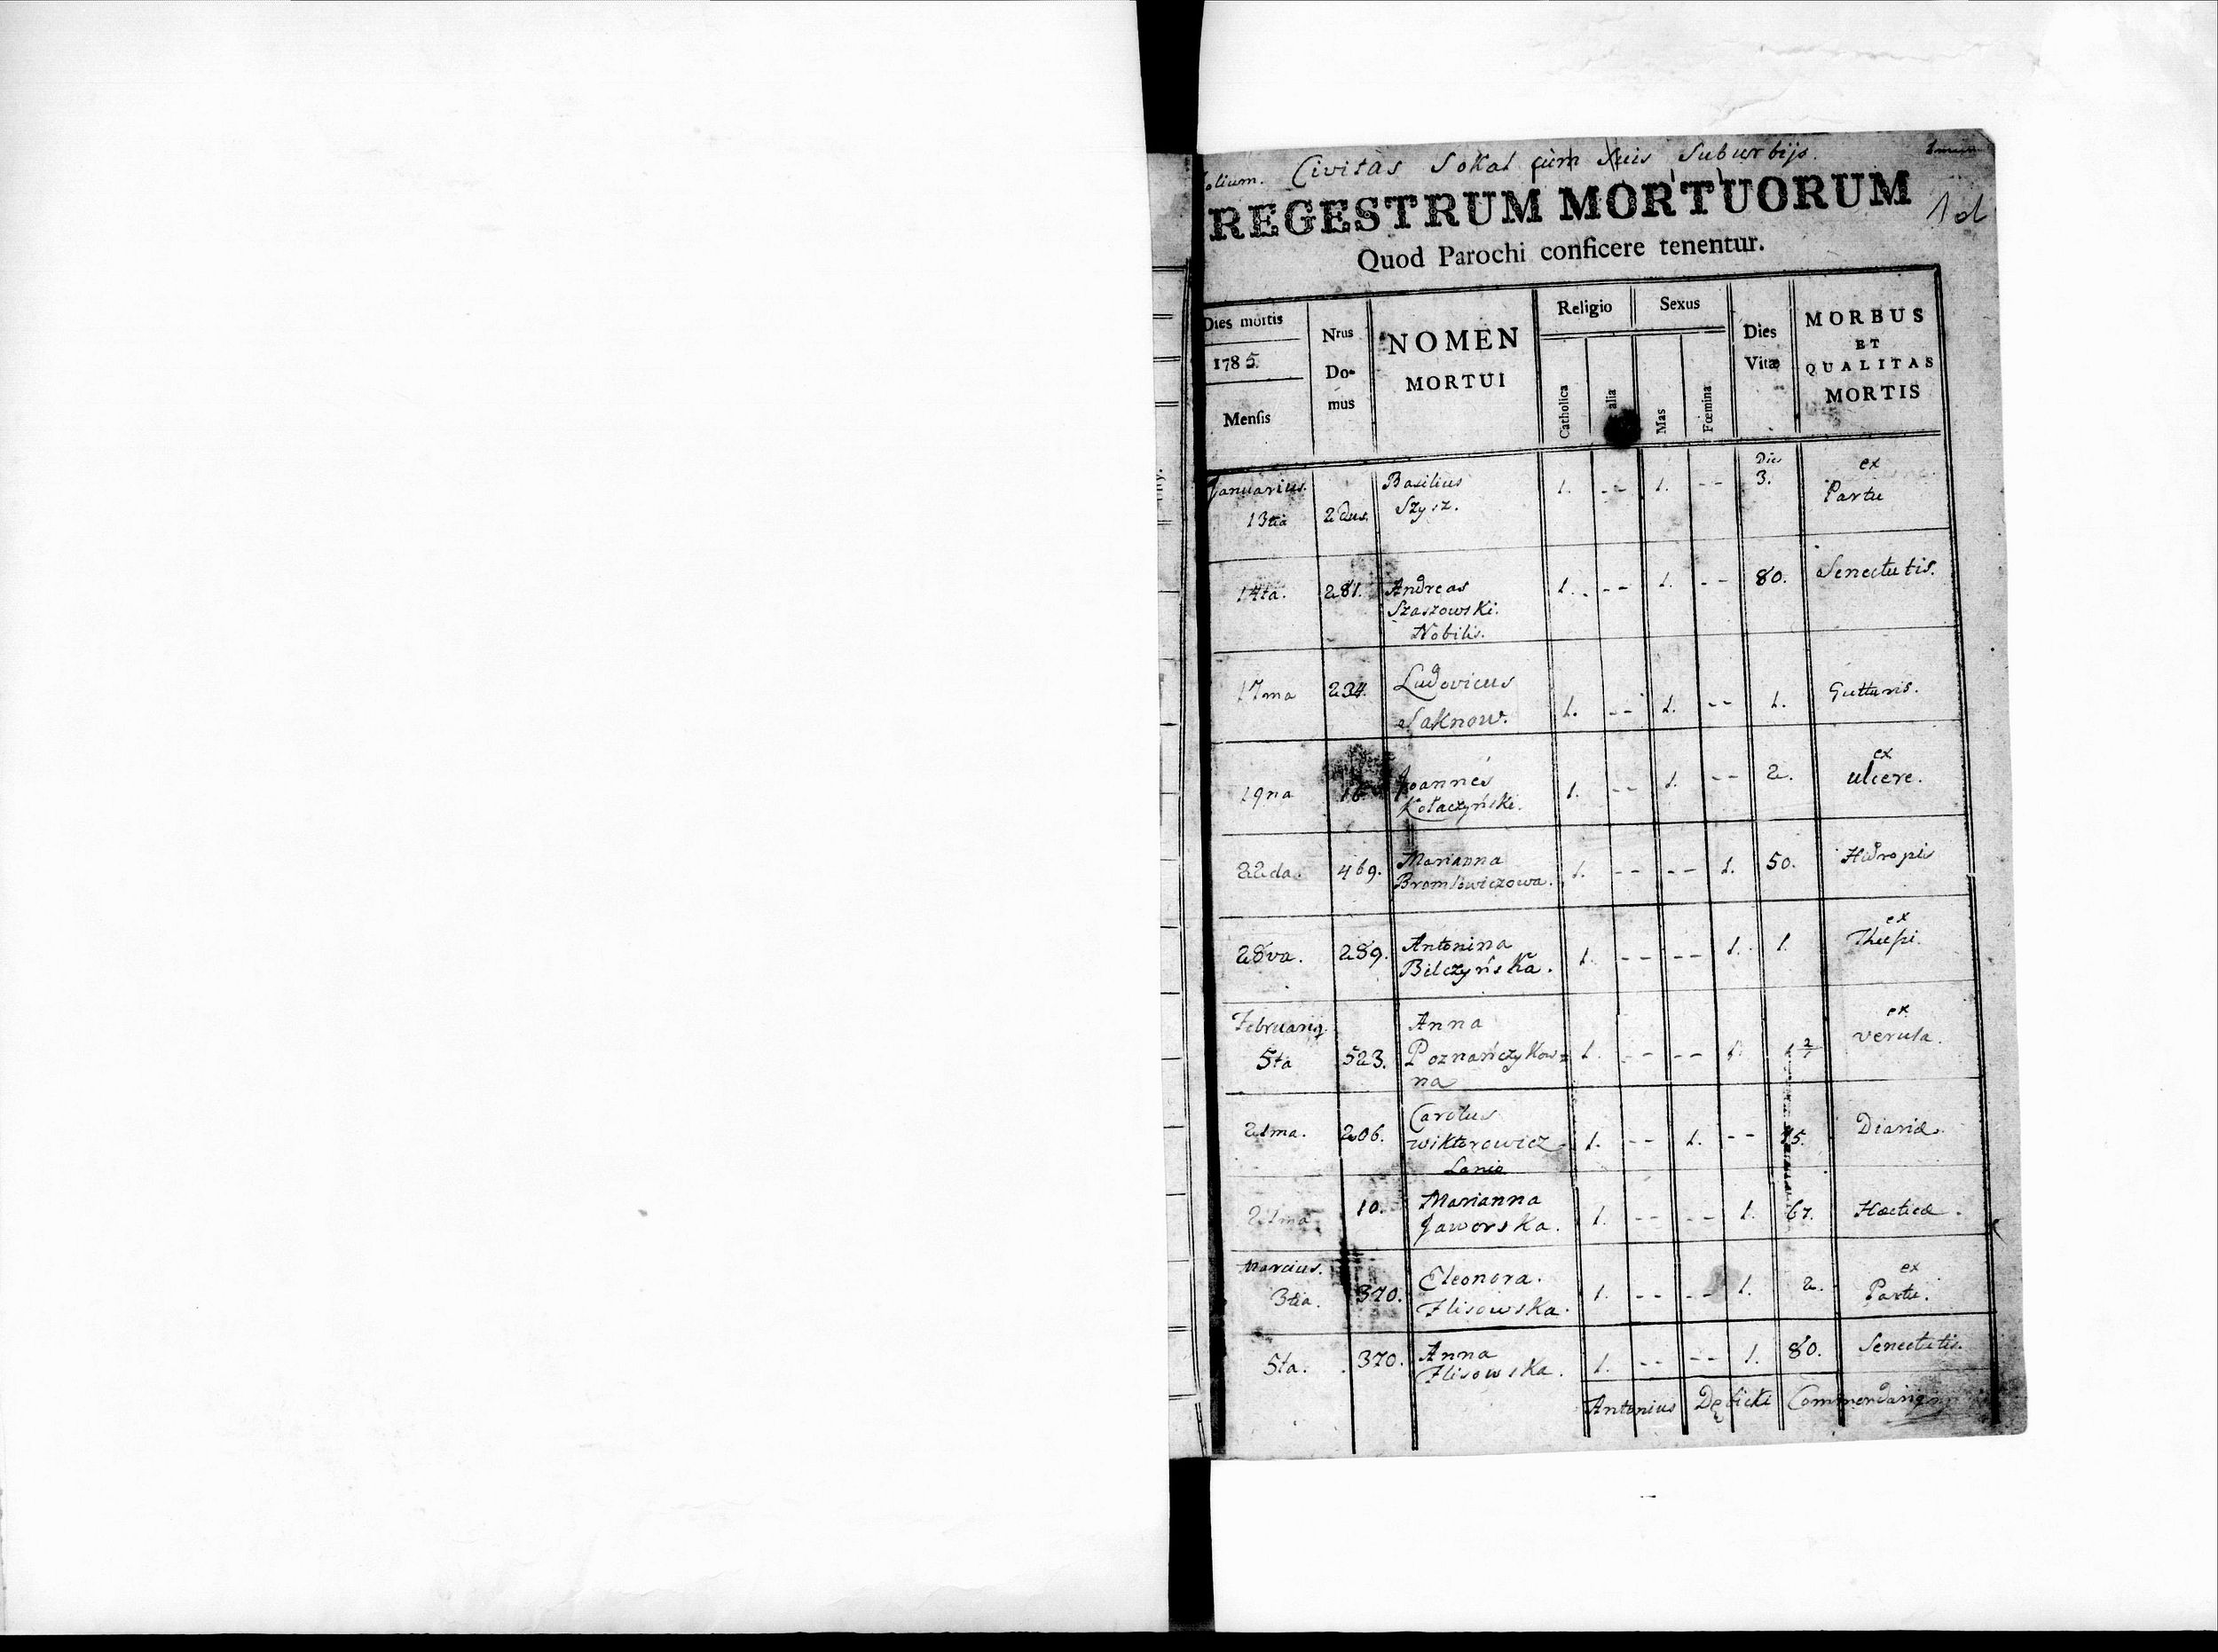 olium. Civitas Sokal cum suis Suburbijs.
REGESTRUM MORTUORUM
1d
Quod Parochi conficere tenentur.
Dies mortis 1785. Mensis | Nrus Domus | NOMEN MORTUI | Religio Catholica alia | Sexus Mas Fœmina | Dies Vitæ | MORBUS ET QUALITAS MORTIS
Januarius. 13tia | 2dus. | Basilius Szysz. | 1. | -- | 1. | -- | Dies 3. | ex Partu
14ta. | 281. | Andreas Szaszowski. Nobilis. | 1. | -- | 1. | -- | 80. | Senectutis.
17ma | 234. | Ludovicus Saknow. | 1. | -- | 1. | -- | 1. | Gutturis.
19na | Joannes Kołaczyński. | 1. | -- | 1. | -- | 2. | ex ulcere.
22da. | 469. | Marianna | 1. | -- | -- | 1. | 50. | Hidropis
28va. | 289. | Antonina Bilczyńska. | 1. | -- | -- | 1. | 1. | ex
Februarig. 5ta | 523. | Anna Poznańczykow=
na | 1. | -- | -- | 1. | ex
21ma. | 206. | Carolus Wiktorowicz Lanio | 1. | -- | 1. | -- | Diariæ.
21ma | 10. | Marianna Jaworska. | 1. | -- | -- | 1. | 67. | Hecticæ.
Marcius. 3tia. | 370. | Eleonora. Flisowska. | 1. | -- | -- | 1. | 2. | ex Partu.
5ta. | 370. | Anna Flisowska. | 1. | -- | -- | 1. | 80. | Senectutis.
Antonius Dębicki